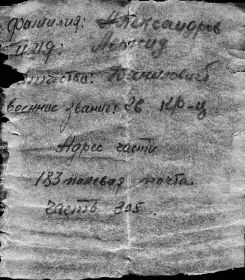 фамилия: Александров
имя: Леонид
отчество:
военное звание: гв кр-ц
Адрес части
183 полевая почта
часть 305.